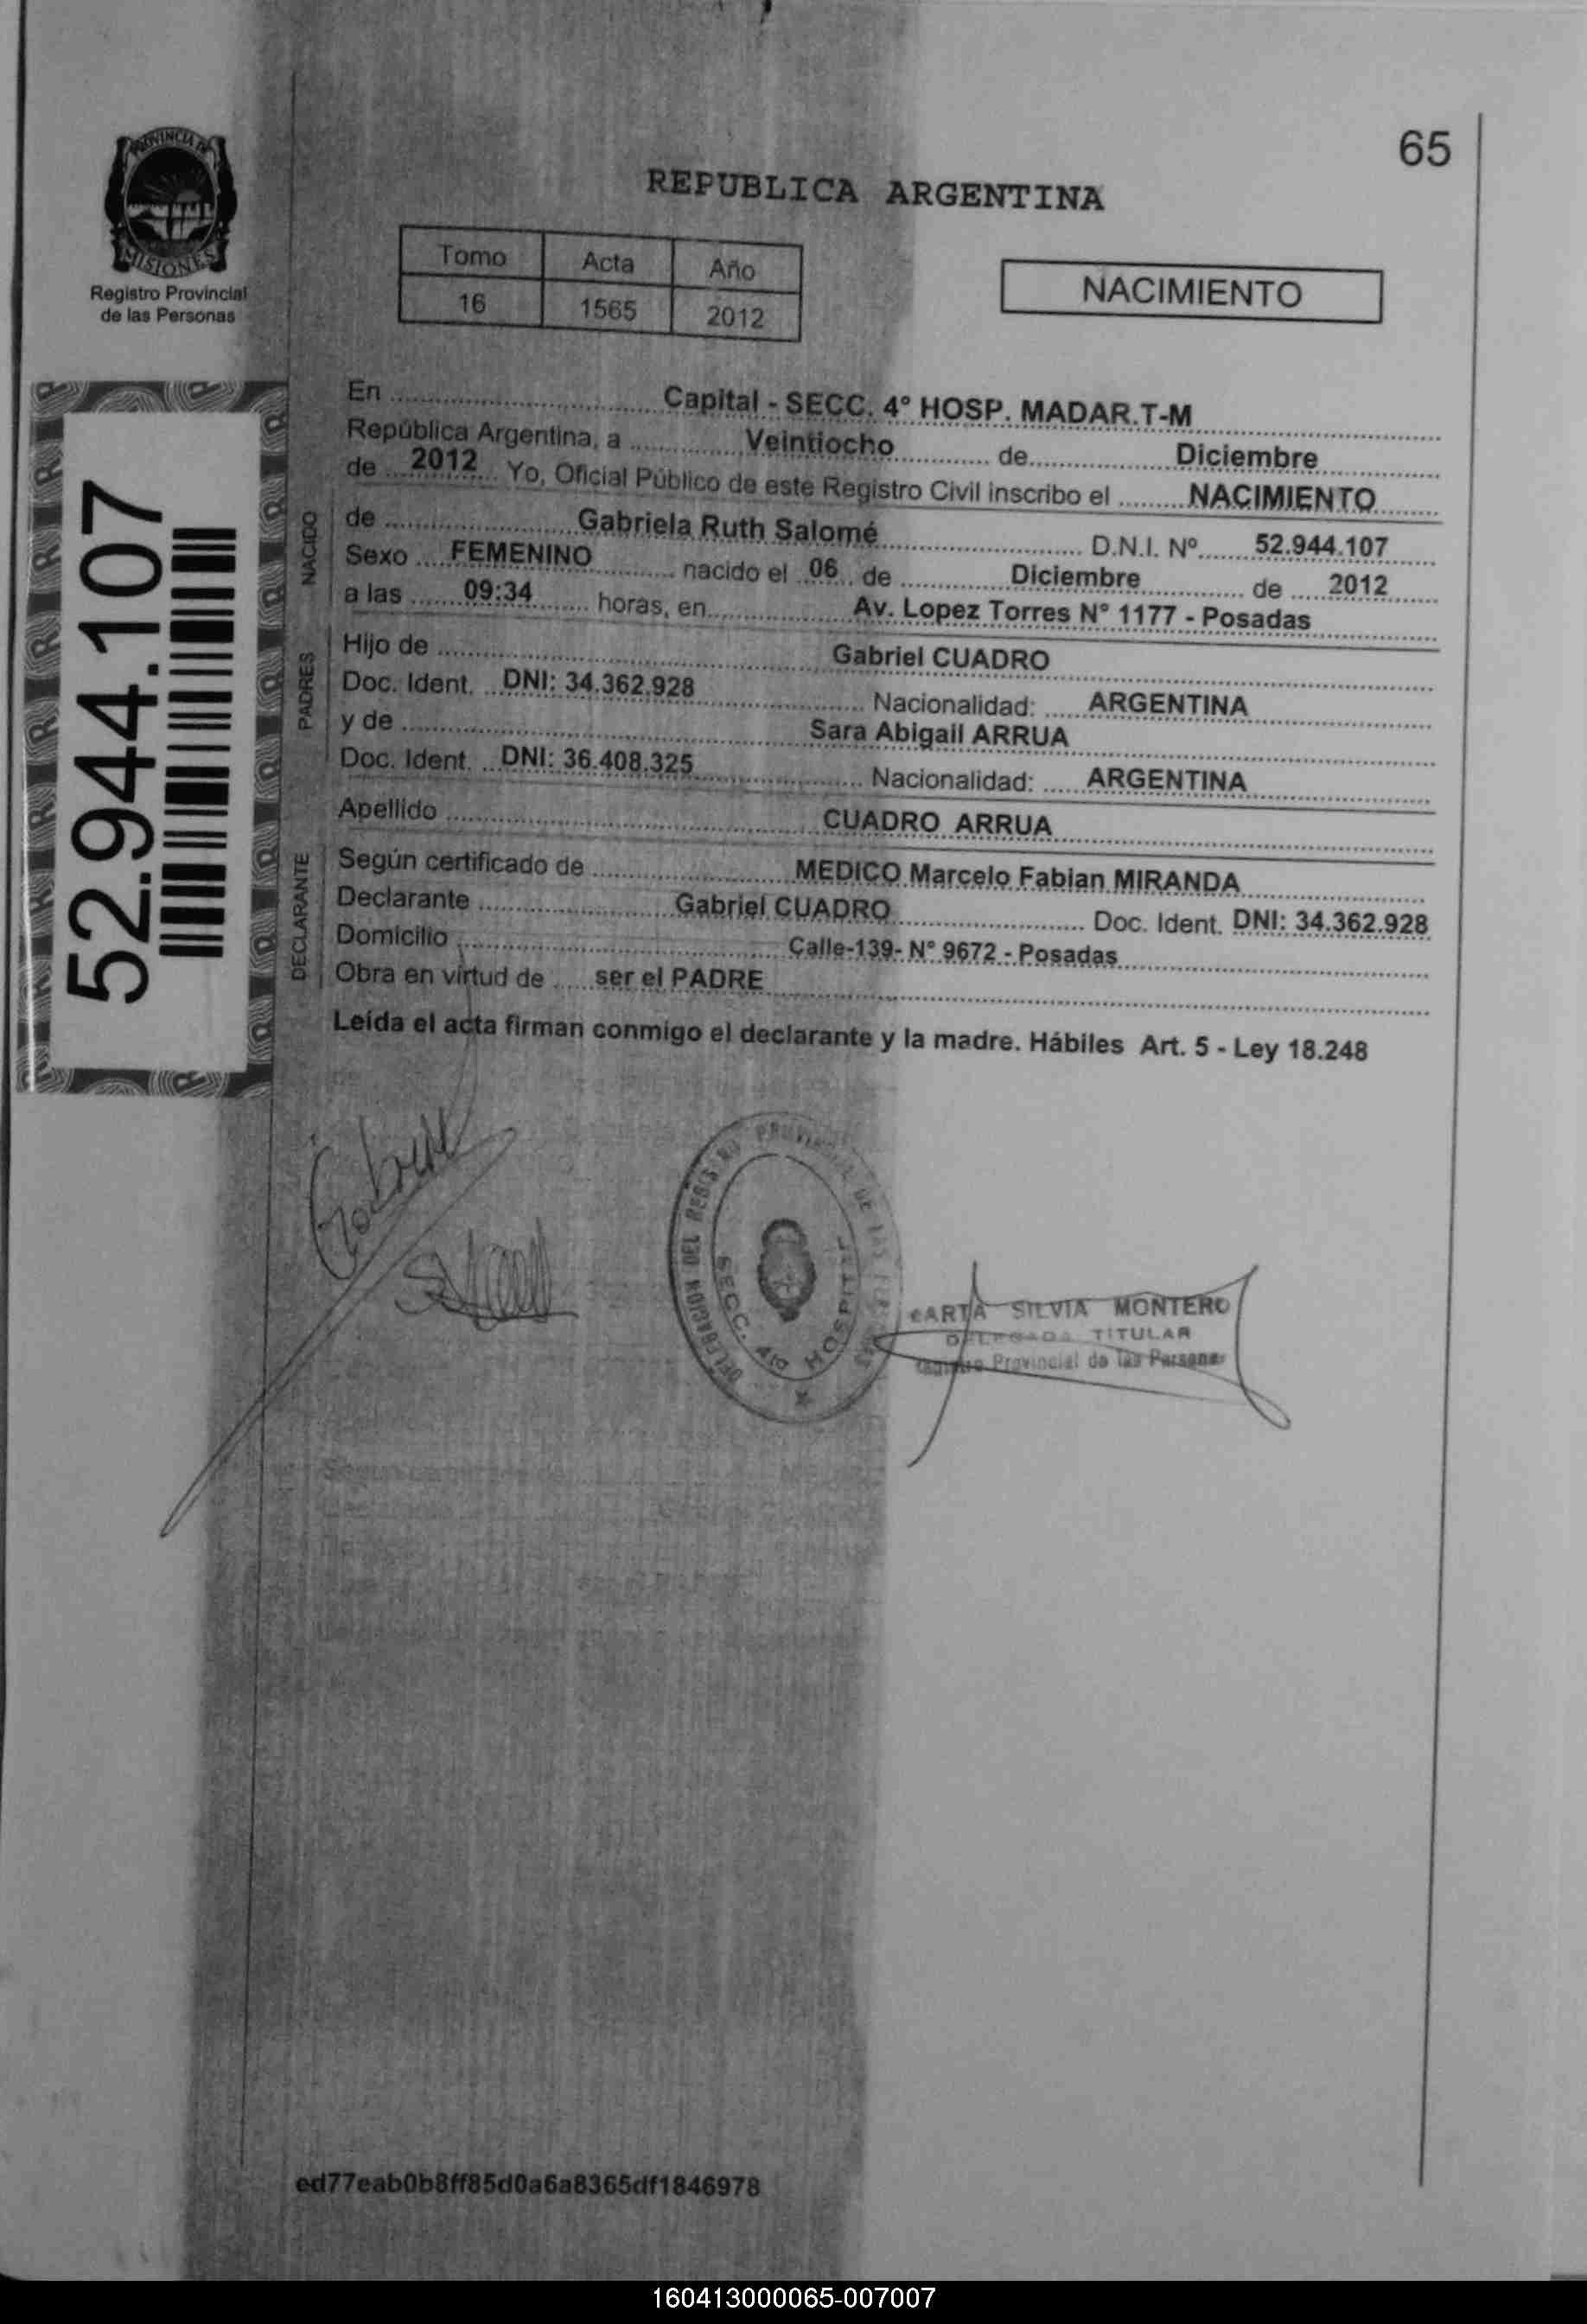 65
PROVINCIA DE
MISIONES
Registro Provincial
de las Personas
REPUBLICA ARGENTINA
Tomo Acta Año
16 1565 2012
NACIMIENTO
52.944.107
En Capital - SECC. 4° HOSP. MADAR.T-M
República Argentina, a Veintiocho de Diciembre
de 2012 Yo, Oficial Público de este Registro Civil inscribo el NACIMIENTO
NACIDO
de Gabriela Ruth Salomé D.N.I. Nº 52.944.107
Sexo FEMENINO nacido el 06 de Diciembre de 2012
a las 09:34 horas, en Av. Lopez Torres N° 1177 - Posadas
PADRES
Hijo de Gabriel CUADRO
Doc. Ident. DNI: 34.362.928 Nacionalidad: ARGENTINA
y de Sara Abigail ARRUA
Doc. Ident. DNI: 36.408.325 Nacionalidad: ARGENTINA
Apellido CUADRO ARRUA
DECLARANTE
Según certificado de MEDICO Marcelo Fabian MIRANDA
Declarante Gabriel CUADRO Doc. Ident. DNI: 34.362.928
Domicilio Calle-139- N° 9672 - Posadas
Obra en virtud de ser el PADRE
Leída el acta firman conmigo el declarante y la madre. Hábiles Art. 5 - Ley 18.248
DELEGACION DEL REGISTRO PROVINCIAL DE LAS
SECC. 4ta HOSPITAL
SILVIA MONTERO
DELEGADA TITULAR
Provincial de las Personas
ed77eab0b8ff85d0a6a8365df1846978
160413000065-007007